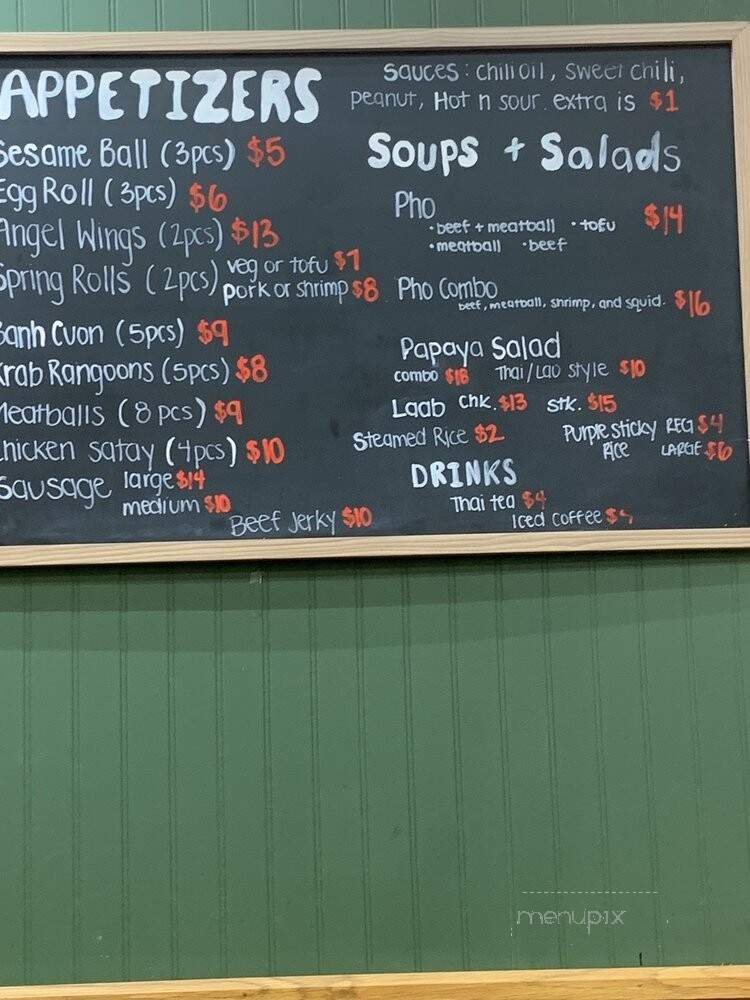 APPETIZERS
Sesame Ball (3pcs) $5
Egg Roll (3pcs) $6
Angel Wings (2pcs) $13
Spring Rolls (2pcs) veg or tofu $7
pork or shrimp $8
Banh Cuon (5pcs) $9
Krab Rangoons (5pcs) $8
Meatballs (8 pcs) $9
Chicken satay (4pcs) $10
Sausage large $14
medium $10
Beef Jerky $10
Sauces: chili oil, sweet chili,
peanut, Hot n sour. extra is $1
Soups + Salads
Pho $14
• beef + meatball • tofu
• meatball • beef
Pho Combo
beef, meatball, shrimp, and squid. $16
Papaya Salad
combo Thai/Lao style $10
Laab chk. $13 stk. $15
Steamed Rice $2 Purple sticky REG $4
Rice LARGE $6
DRINKS
Thai tea $4
Iced Coffee
menupix